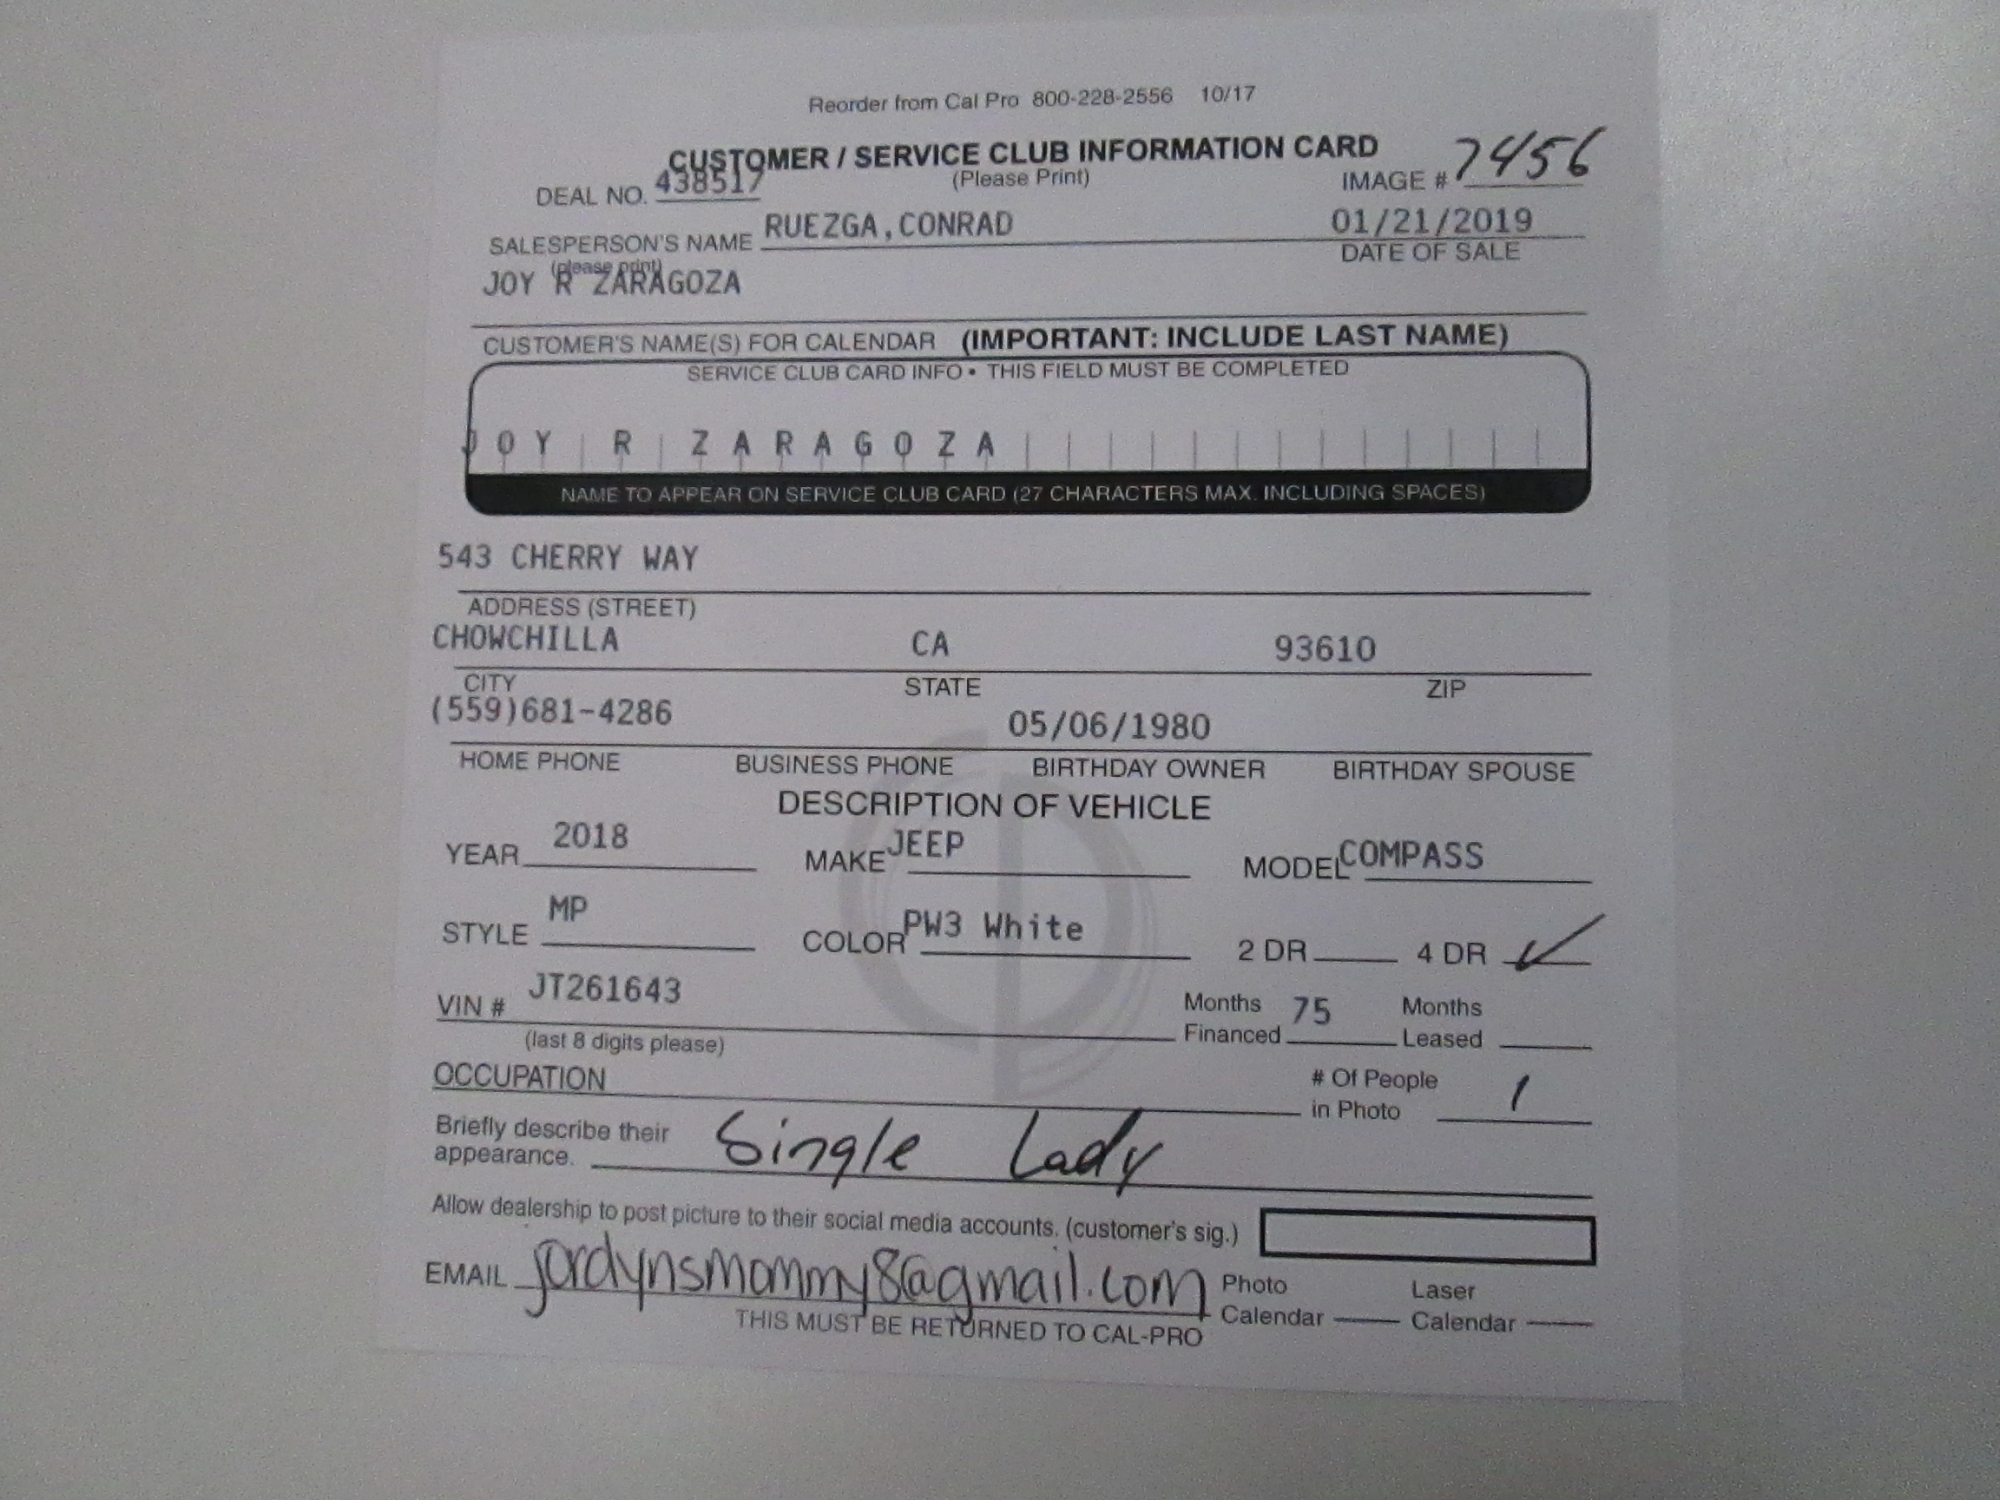 Reorder from Cal Pro 800-228-2556 10/17
CUSTOMER / SERVICE CLUB INFORMATION CARD
(Please Print)
DEAL NO. 438517 IMAGE # 7456
SALESPERSON'S NAME RUEZGA,CONRAD 01/21/2019
(please print) DATE OF SALE
JOY R ZARAGOZA
CUSTOMER'S NAME(S) FOR CALENDAR (IMPORTANT: INCLUDE LAST NAME)
SERVICE CLUB CARD INFO • THIS FIELD MUST BE COMPLETED
JOY R ZARAGOZA
NAME TO APPEAR ON SERVICE CLUB CARD (27 CHARACTERS MAX. INCLUDING SPACES)
543 CHERRY WAY
ADDRESS (STREET)
CHOWCHILLA CA 93610
CITY STATE ZIP
(559)681-4286 05/06/1980
HOME PHONE BUSINESS PHONE BIRTHDAY OWNER BIRTHDAY SPOUSE
DESCRIPTION OF VEHICLE
YEAR 2018 MAKE JEEP MODEL COMPASS
STYLE MP COLOR PW3 White 2 DR 4 DR ✓
VIN # JT261643 Months Financed 75 Months Leased
(last 8 digits please)
OCCUPATION # Of People in Photo 1
Briefly describe their appearance. Single Lady
Allow dealership to post picture to their social media accounts. (customer's sig.)
EMAIL jordynsmommy8@gmail.com Photo Calendar Laser Calendar
THIS MUST BE RETURNED TO CAL-PRO